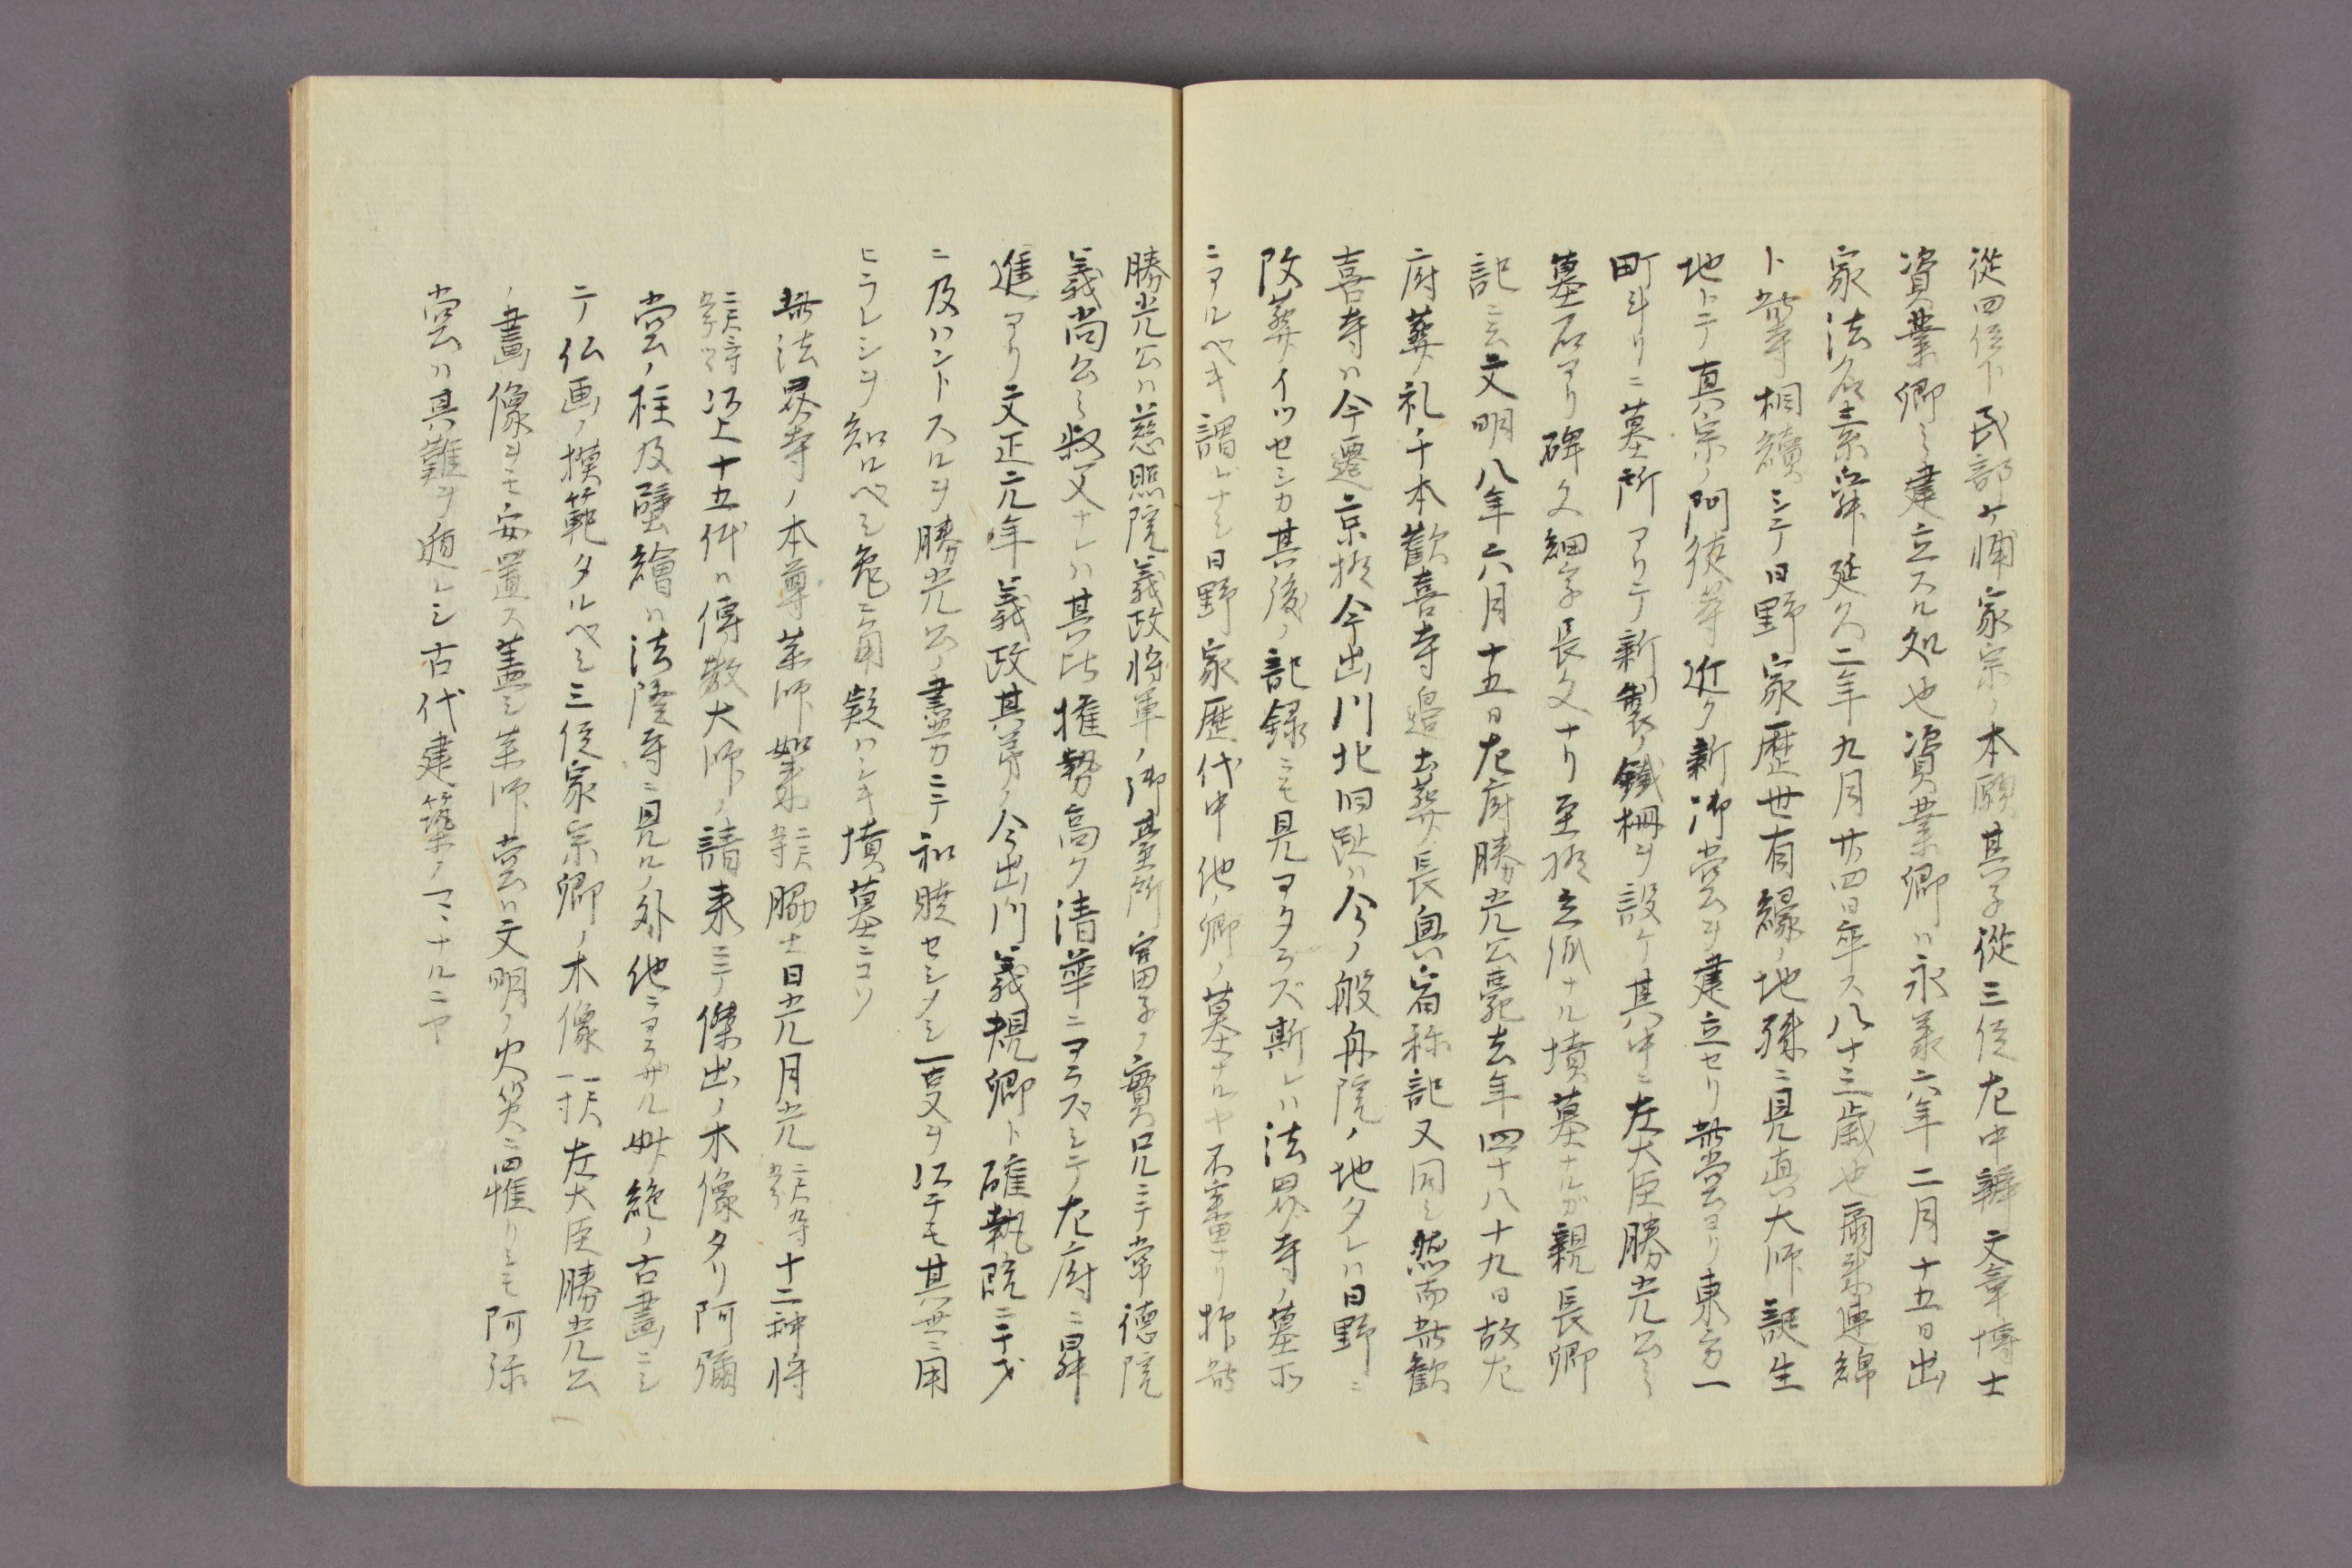 從四位下民部少輔家宗ノ本願其子從三位左中辨文章博士
資業卿之建立スル処也資業卿ハ永義六年二月十五日出
家法名素舜延久二年九月廿四日卒ス八十三歳也爾来連綿
ト此寺相續シテ日野家歴世有縁ノ地殊ニ見真大師誕生
地トテ真宗ノ門徒等近ク新御堂ヲ建立セリ此堂ヨリ東方一
町斗リニ墓所アリテ新製ノ鐵柵ヲ設ケ其中ニ左大臣勝光公之
墓石アリ碑文細字長文ナリ至極立派ナル墳墓ナルガ親長卿
記ニ云文明八年六月十五日左府勝光公薨去年四十八十九日故左
府葬礼千本歡喜寺邉土葬長興宿祢記又同シ然而此歓
喜寺ハ今遷京極今出川北旧趾ハ今ノ般舟院ノ地タレハ日野ニ
改葬イツセシカ其後ノ記録ニモ見ヨタラズ斯レハ法界寺ノ墓所
ニアルヘキ謂レナシ日野家歴代中他ノ卿ノ墓ナルヤ不審ナリ抑此
勝光公ハ慈照院義政将軍ノ御臺所富子ノ實兄ニテ常徳院
義尚公之叔父ナレハ其比権勢高ク清華ニアラスシテ左府ニ昇
進アリ文正元年義政其弟ノ今出川義視卿ト確執既ニ干戈
ニ及ハントスルヲ勝光公ノ盡力ニテ和睦セシメシ一隻ヲ以テモ其無ニ用
ヒラレシヲ知ルヘシ兎ニ角疑ハシキ墳墓ニコソ
此法界寺ノ本尊薬師如来二尺八寸脇士日光月光二尺九寸十二神将
以上十五体ハ傳教大師ノ請来ニテ傑出ノ木像タリ阿彌
堂ノ柱及壁繪ハ法隆寺ニ見ルノ外他ニアラサル妙絶ノ古畫ニシ
テ仏画ノ模範タルヘシ三位家宗卿ノ木像一尺一寸左大臣勝光公
ノ畫像ヲモ安置ス蓋シ薬師堂ハ文明ノ火災ニ罹リシモ阿弥
堂ハ其難ヲ遁レシ古代建築ノママナルニヤ